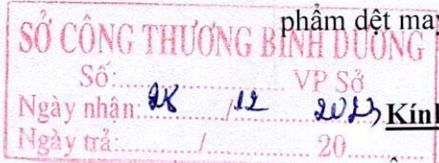 phẩm dệt may
SỞ CÔNG THƯƠNG BÌNH DƯƠNG
Số:.................... VP Sở
Ngày nhận: 28 / 12 2023 Kín
Ngày trả:............/............ 20............